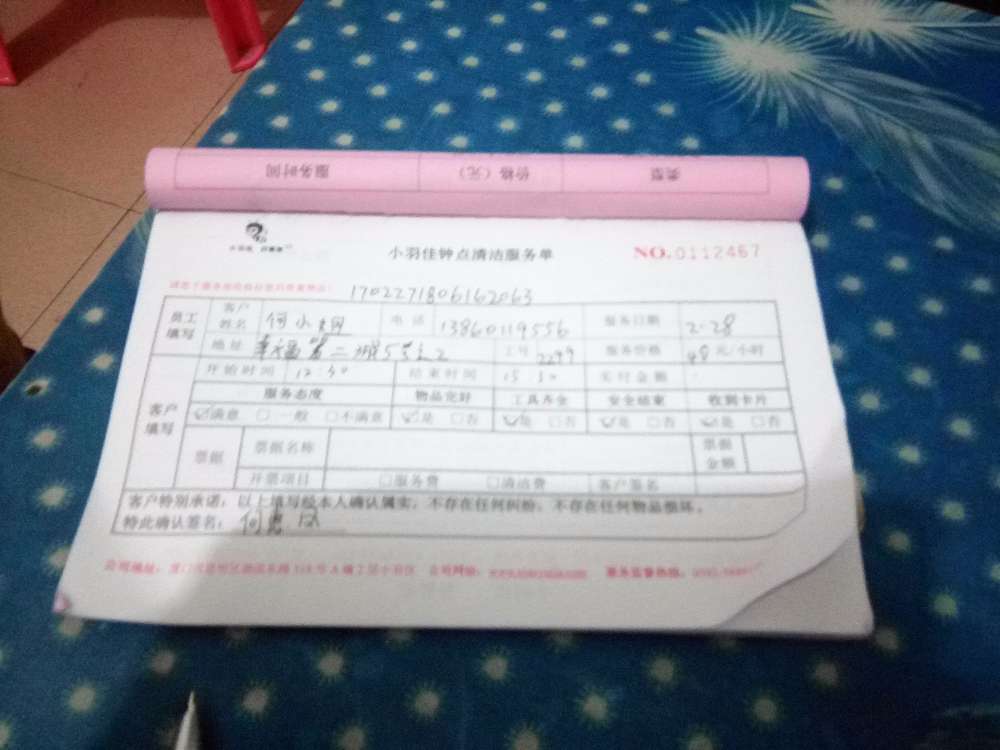 服务时间 价格（元） 类型
小羽佳钟点清洁服务单 NO.0112467
1702271806162063
员工填写 客户姓名 何小 电话 13860119556 服务日期 2.28
地址 幸福第二城 工号 2299 服务价格 48 元/小时
开始时间 12:30 结束时间 15:30 实付金额
客户填写 服务态度 物品完好 工具齐全 安全结束 收到卡片
☑满意 □一般 □不满意 ☑是 □否 ☑是 □否 ☑是 □否 ☑是 □否
票据 票据名称 票据金额
开票项目 □服务费 □清洁费 客户签名
客户特别承诺：以上填写经本人确认属实，不存在任何纠纷，不存在任何物品损坏。
特此确认签名：何
公司地址： 公司网址： 服务监督热线：